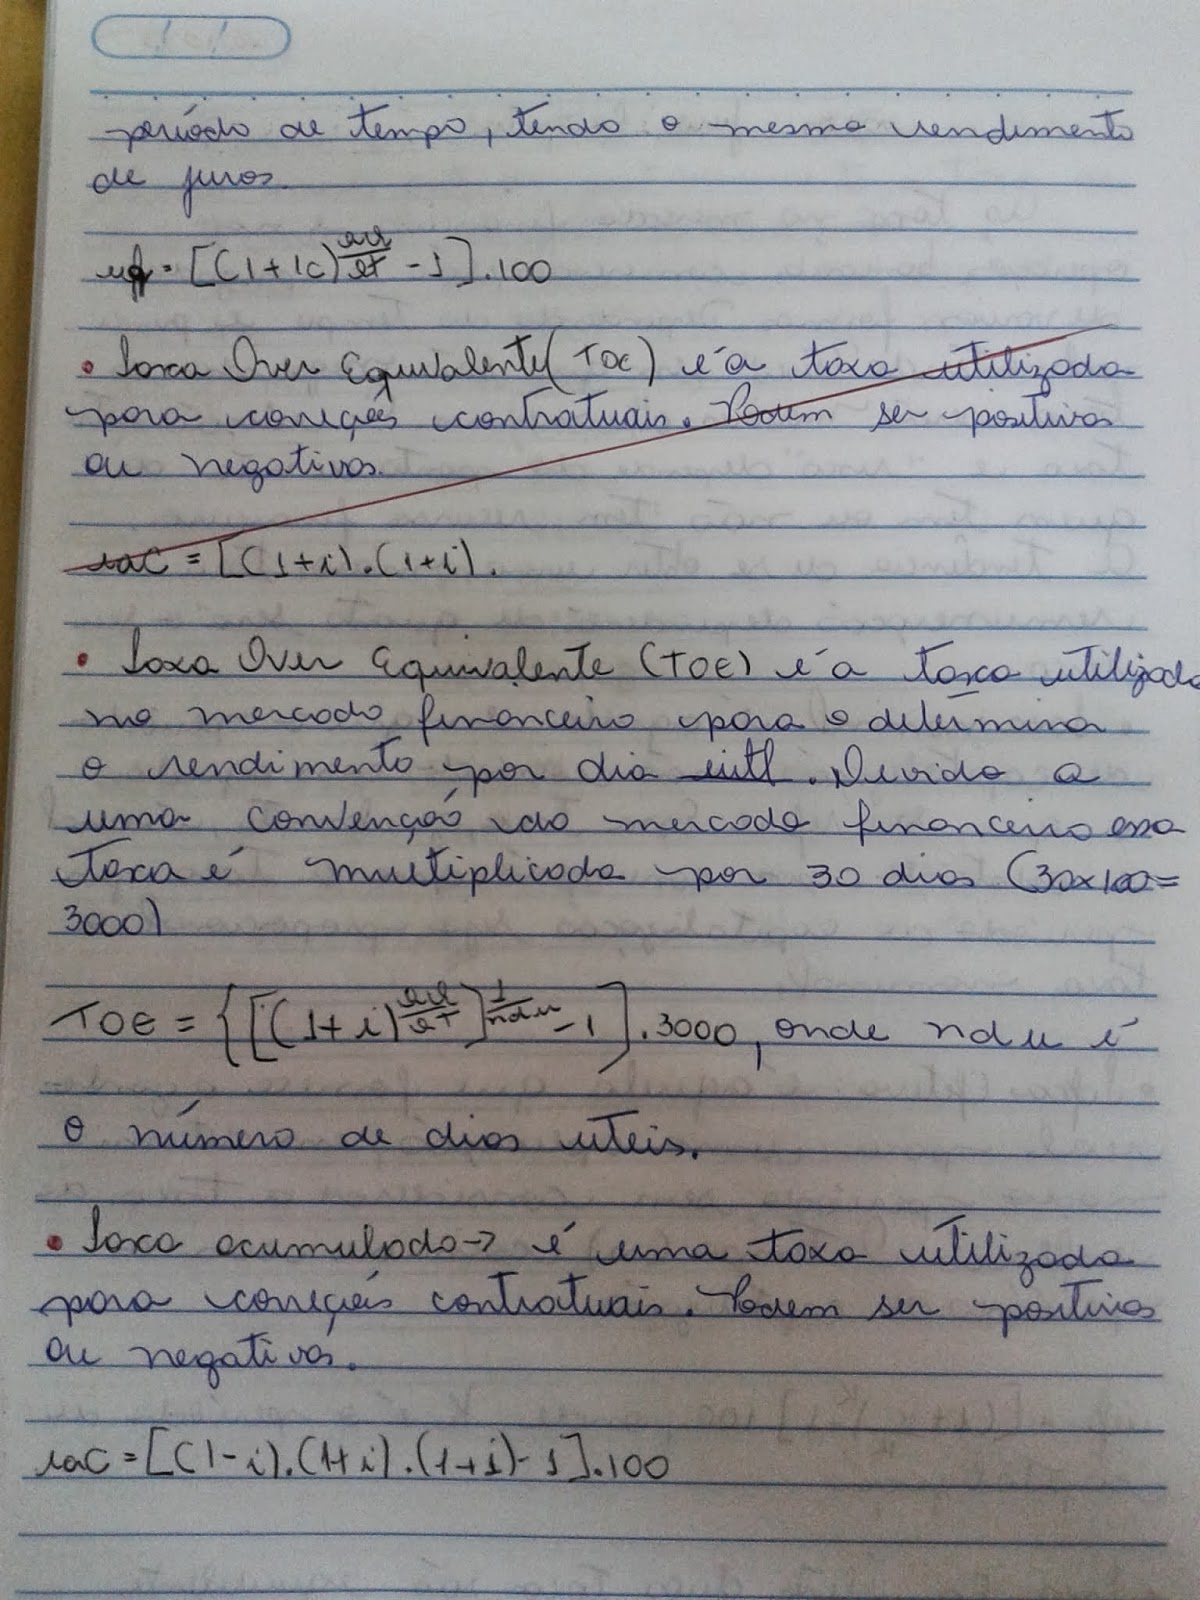 período de tempo, tendo o mesmo rendimento
de juros.
= [(1+ic) QQ/QT - 1].100
• Taxa Over Equivalente (TOE) é a taxa utilizada
para correções contratuais. Podem ser positivas
ou negativas.
iaC = [(1+i).(1+i).
• Taxa Over Equivalente (TOE) é a taxa utilizada
no mercado financeiro para o determina
o rendimento por dia útil. Devido a
uma convenção do mercado financeiro essa
taxa é multiplicada por 30 dias (30x100=
3000)
TOE = {[(1+i) QQ/QT ] 1/ndu - 1}.3000, onde ndu é
o número de dias uteis.
• Taxa acumulada → é uma taxa utilizada
para correções contratuais. Podem ser positivas
ou negativas.
iaC = [(1-i).(1+i).(1+i)-1].100